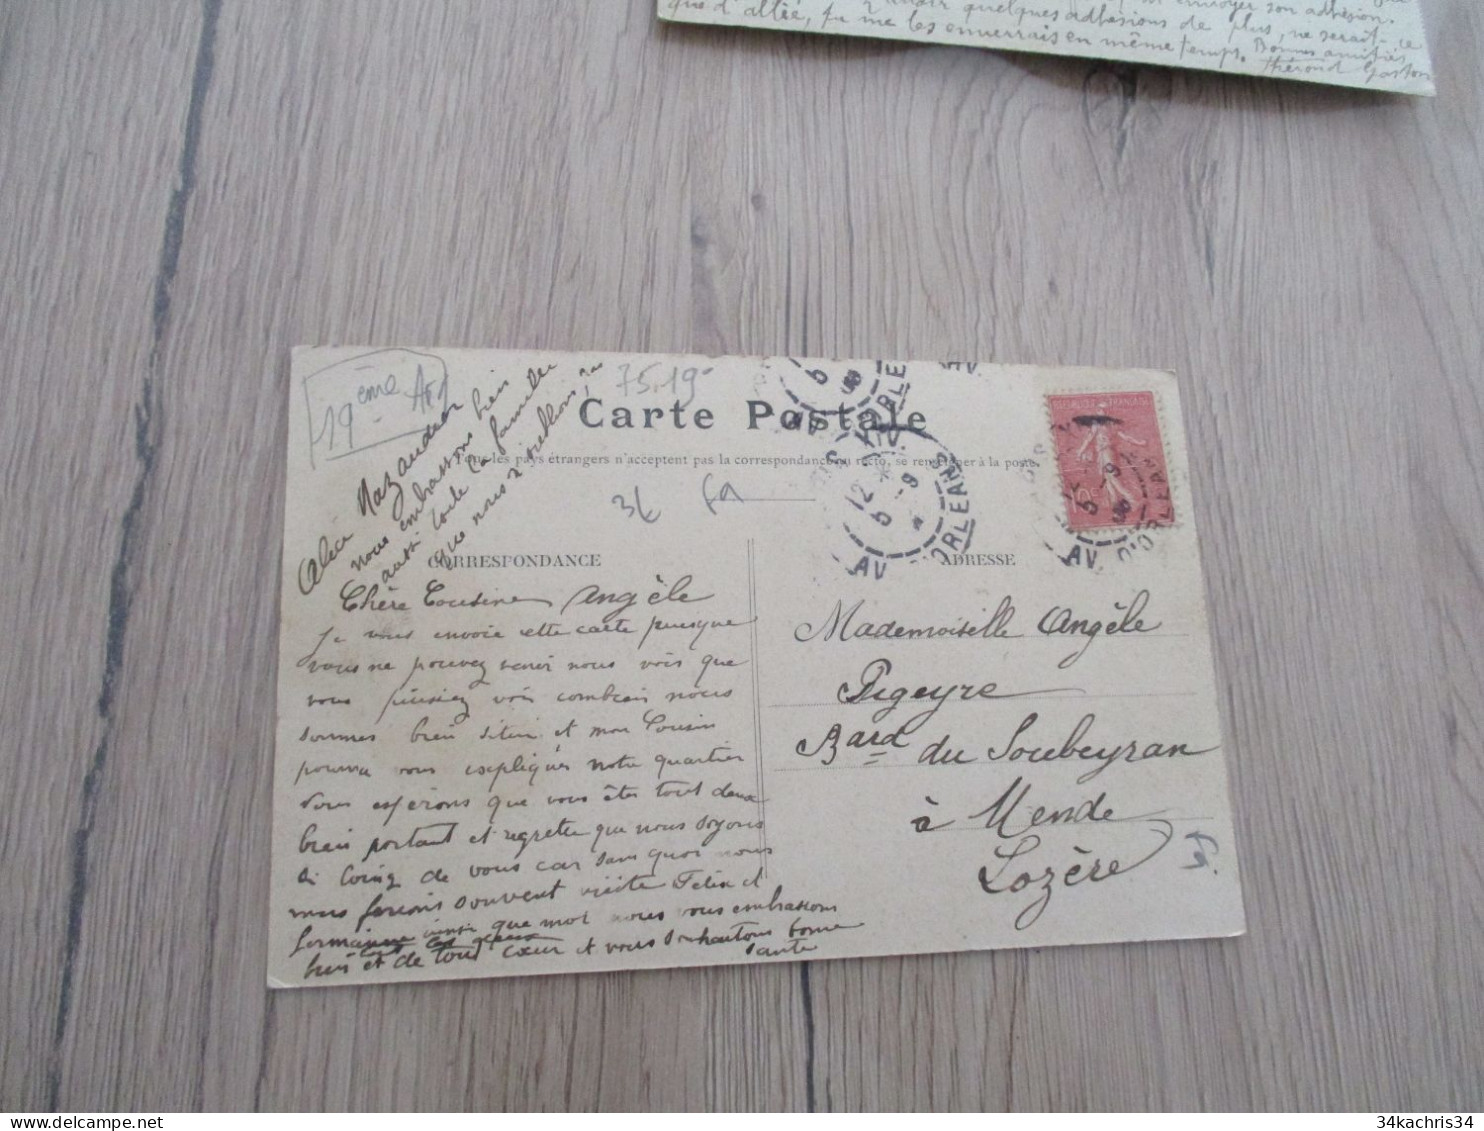 envoyer son adhésion.
que d'allée, quelques adhésions de plus, ne serait-ce
tu me les enverrais en même temps. Bonnes amitiés
Thérond Gaston
19ème Arr
75.19
Carte Postale
Tous les pays étrangers n'acceptent pas la correspondance au recto, se renseigner à la poste
3€
Alice Mazaudier
nous embrassons bien
aussi toute la famille
que nous n'oublions pas
CORRESPONDANCE
ADRESSE
Chère Cousine Angèle
Je vous envoie cette carte puisque
vous ne pouvez venir nous voir que
vous puissiez voir combien nous
sommes bien situé et mon Cousin
pourra vous expliquer notre quartier
nous espérons que vous êtes tout deux
bien portant et regrette que nous soyons
si loing de vous car sans quoi nous
nous ferions souvent visite Félix et
Germaine ainsi que moi nous vous embrassons
bien et de tout cœur et vous souhaitons bonne
santé
Mademoiselle Angèle
Pigeyre
Bard du Soubeyran
à Mende
Lozère
AV. D'ORLEANS
12
5 -9
AV. D'ORLEANS
10c
34kachris34